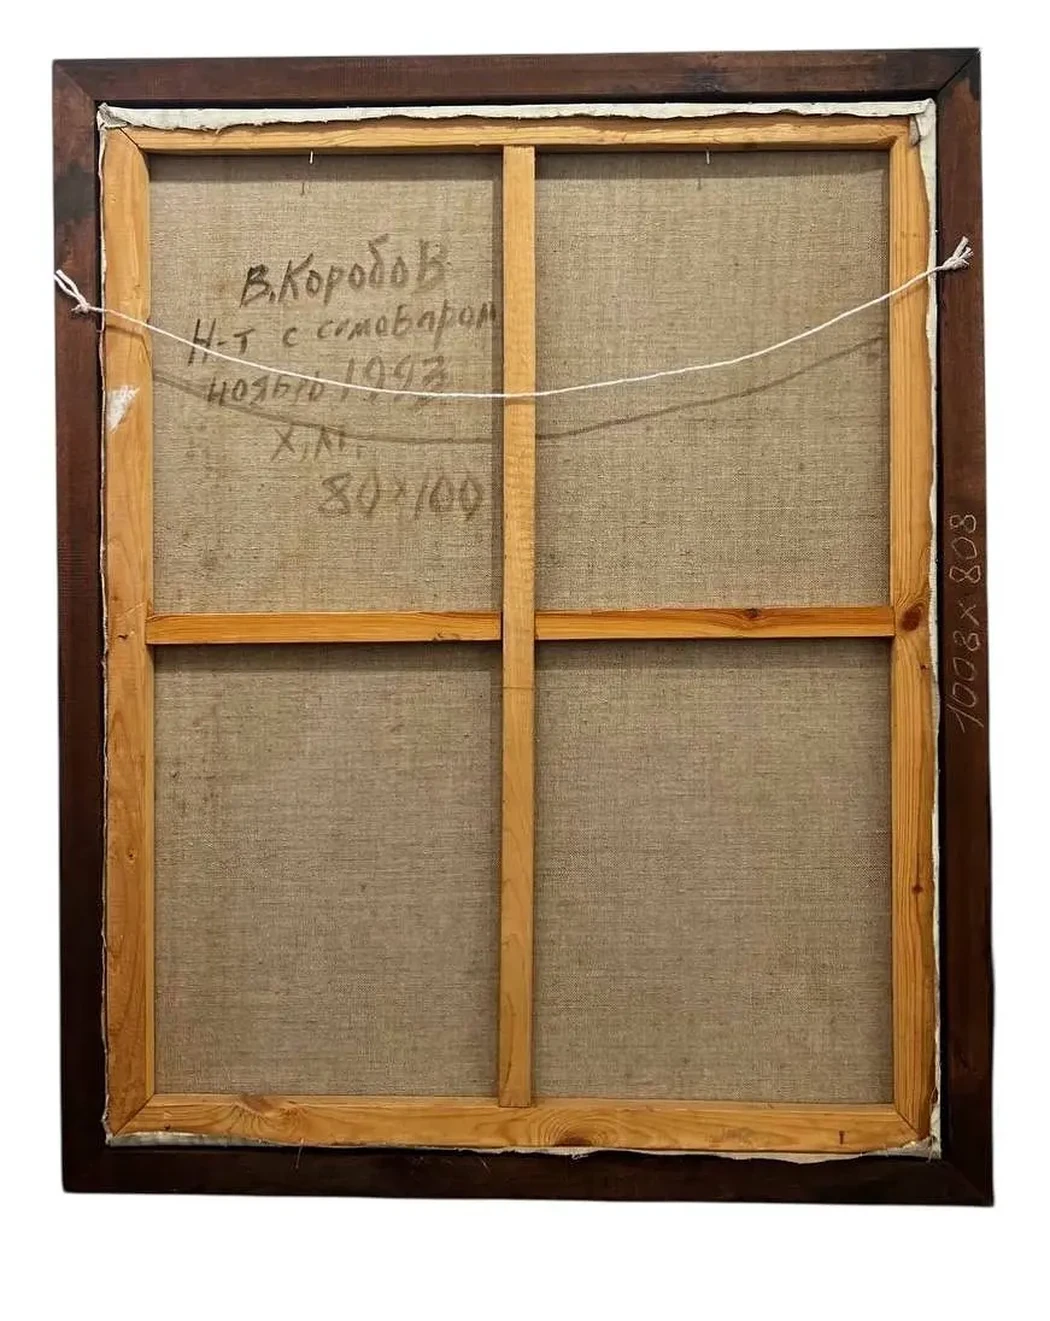 В. Коробов
Н-т с самоваром
ноябрь 1993
Х.М.
80×100
1008×808